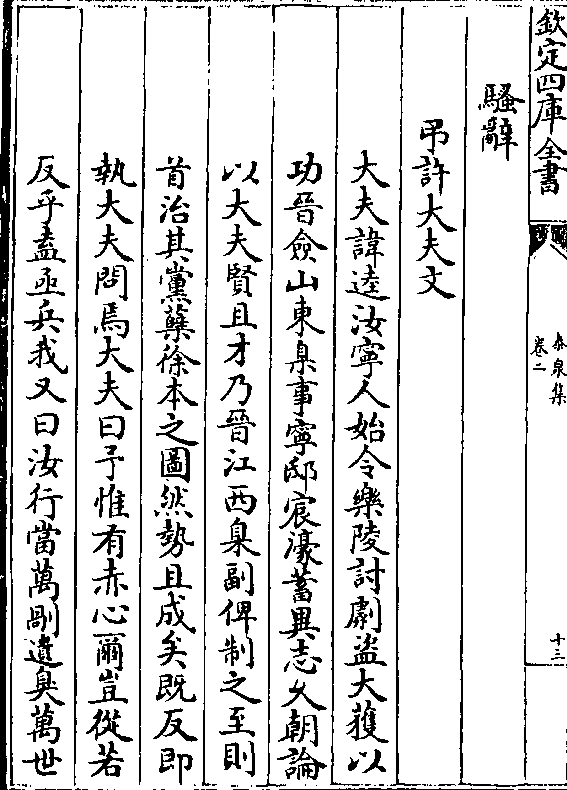 欽定四庫全書
泰泉集
卷二
十三
騷辭
弔許大夫文
大夫諱逵汝寧人始令樂陵討劇盜大獲以
功晉僉山東臬事寧邸宸濠蓄異志久朝論
以大夫賢且才乃晉江西臬副俾制之至則
首治其黨蘖徐本之圖然勢且成矣既反即
執大夫問焉大夫曰予惟有赤心爾豈從若
反乎盍亟兵我又曰汝行當萬剮遺臭萬世